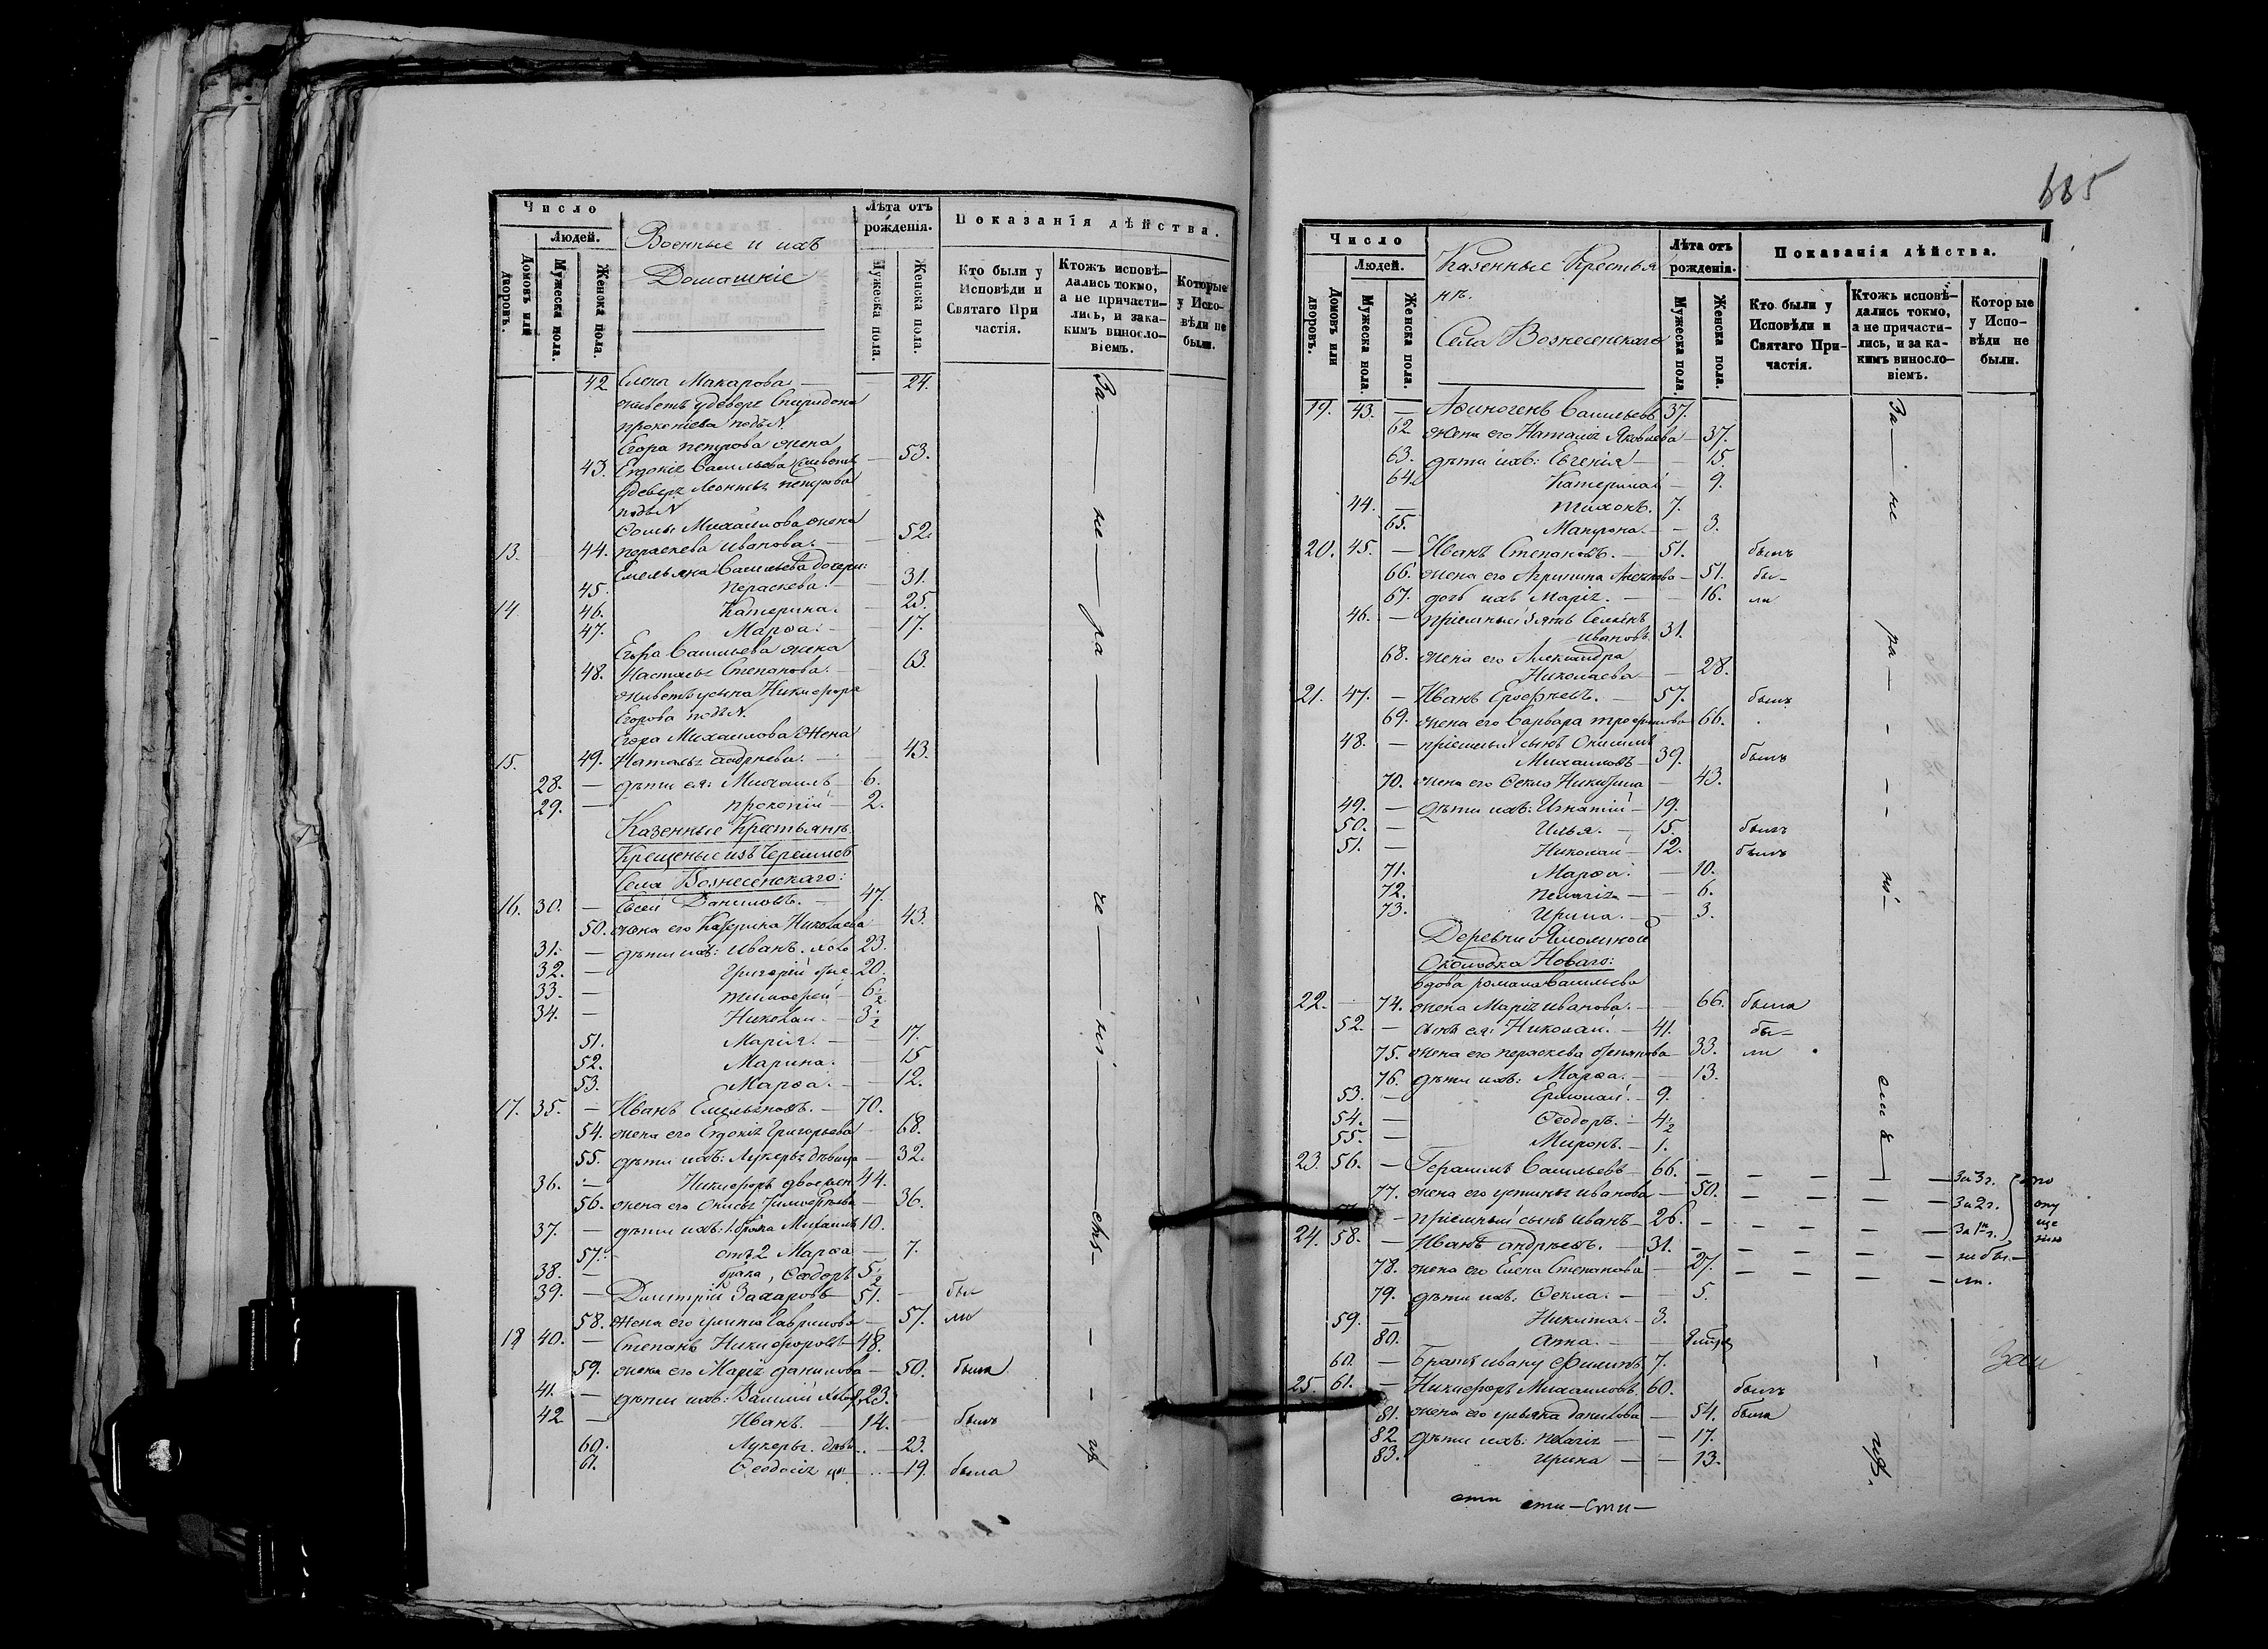 Число
Людей.
Домовъ или дворовъ.
Мужеска пола.
Женска пола.
Военные и ихъ
Домашніе
Лѣта отъ рожденія.
Мужеска пола.
Женска пола.
Показанія дѣйства.
Кто были у Исповѣди и Святаго При частія.
Ктожъ исповѣ-дались токмо, а не причасти-лись, и зака-кимъ винослo-віемъ.
Которые у Испо-вѣди не были.
42 Елена Макарова — 24.
живетъ у деверя Спиридона
прокопіева подъ №.
Егора петрова жена
43. Евдокія Васильева — 53.
подъ №
Ѳомы Михайлова жена
13. 44. пераскева иванова. — 52.
Емельяна Васильева дочери:
45. Пераскева. — 31.
14 46. Катерина. — 25.
47. Марѳа. — 17.
Егора Васильева жена
48. Настасья Степанова. — 63.
живетъ у сына Никифора
Егорова подъ №.
Егора Михаилова жена
15. 49. Наталья андрѣева. — 43.
28. — дѣти ея: Михаилъ — 6.
29. — прокопій — 2.
Казенные Крестьянѣ
Крещеные изъ Черемисъ
Села Вознесенскаго:
16. 30. — Евсей Даниловъ. — 47.
50. жена его Катерина Николаева — 43.
31. — дѣти ихъ: Иванъ. холо 23.
32. — Григорій 20.
33. — тимофей — 6 1/2
34. — Николай. — 3 1/2
51. Марія. — 17.
52. Марина. — 15
53. Марѳа. — 12.
17. 35. — Иванъ Емельяновъ. — 70.
54. жена его Евдокія Григорьева — 68.
55. дѣти ихъ: Лукерья дѣвица — 32.
36. — Никифоръ двоежен 44.
56. жена его Тимофеева — 36.
37. — дѣти ихъ: 1. брака Михаилъ 10.
57. отъ 2 Марѳа — 7.
38. — брака, Ѳеодоръ 5 1/2
39. — Дмитрій Захаровъ — 51. — бы
58. жена его Гаврилова — 57. ли
18 40. — Степанъ Никифоровъ — 48.
59. жена его Марія данилова — 50. была
41. — дѣти ихъ: Василій 23.
42 — Иванъ. — 14. — былъ
60. Лукерья. — 23.
61. Ѳеодосія — 19. была
За — не — ра — че — ні
685
Число
Людей.
Домовъ или дворовъ.
Мужеска пола.
Женска пола.
Казенные Крестья
нѣ.
Села Вознесенскаго
Лѣта отъ рожденія.
Мужеска пола
Женска пола.
Показанія дѣйства.
Кто были у Исповѣди и Святаго При-частія.
Ктожъ исповѣ-дались токмо, а не причасти-лись, и за ка-кимъ виносло-віемъ.
Которые у Испо-вѣди не были.
19. 43. — Аѳиногенъ Васильевъ 37.
62 жена его Наталія Яковлева — 37.
63. дѣти ихъ: Евгенія — 15.
64. Катерина — 9.
44. — тихонъ. 7.
65. Матрона. — 3.
20. 45. — Иванъ Степановъ. — 51. былъ
66. жена его Агрипина — 51. бы-
67. дочь ихъ Марія. — 16. ли
46. — пріемный зять Семенъ
ивановъ 31.
68. жена его Александра
Николаева — 28.
21. 47. — Иванъ Ерофѣевъ. — 57. былъ
69. жена его Варвара трофимова 66.
48. — пріемный сынъ Онисимъ
Михаиловъ — 39. былъ
70. жена его Ѳекла Никитина — 43.
49. — дѣти ихъ: Игнатій — 19.
50. — Илья. — 15. былъ
51. — Николай — 12. былъ
71. Марѳа. — 10.
72. пелагія — 6.
73. Ирина. — 3.
Деревни Ямолиной
Околодка Новаго:
вдова романа васильева
22. — 74. жена Марія иванова. — 66. была
52. — сынъ ея: Николай. — 41. бы-
75. жена его пераскева — 33. ли
76. дѣти ихъ: Марѳа. — 13.
53. — Ермолай. — 9.
54. — Ѳеодоръ. — 4 1/2
55. — Миронъ. — 1.
23. 56. — Герасимъ Васильевъ — 66. — — — — За 3 г. по
77. жена его устинья иванова — 50. — — — — За 2 г. опу
57. — пріемный сынъ иванъ — 26. — — — — За 1 г. ще
24. 58. — Иванъ андрѣевъ. — 31. — — — — не бы- нію
78. жена его Елена Степанова — 27. — — — — ли.
79. дѣти ихъ: Ѳекла. — 5.
59. — Никита. — 3.
80. анна. —
60. — Братъ ивану филипъ 7.
25. 61. — Никифоръ Михаиловъ. 60. былъ
81. жена его ульяна данилова — 54. была
82 дѣти ихъ: пелагія — 17.
83. ирина — 13.
За — не — ра — ні —